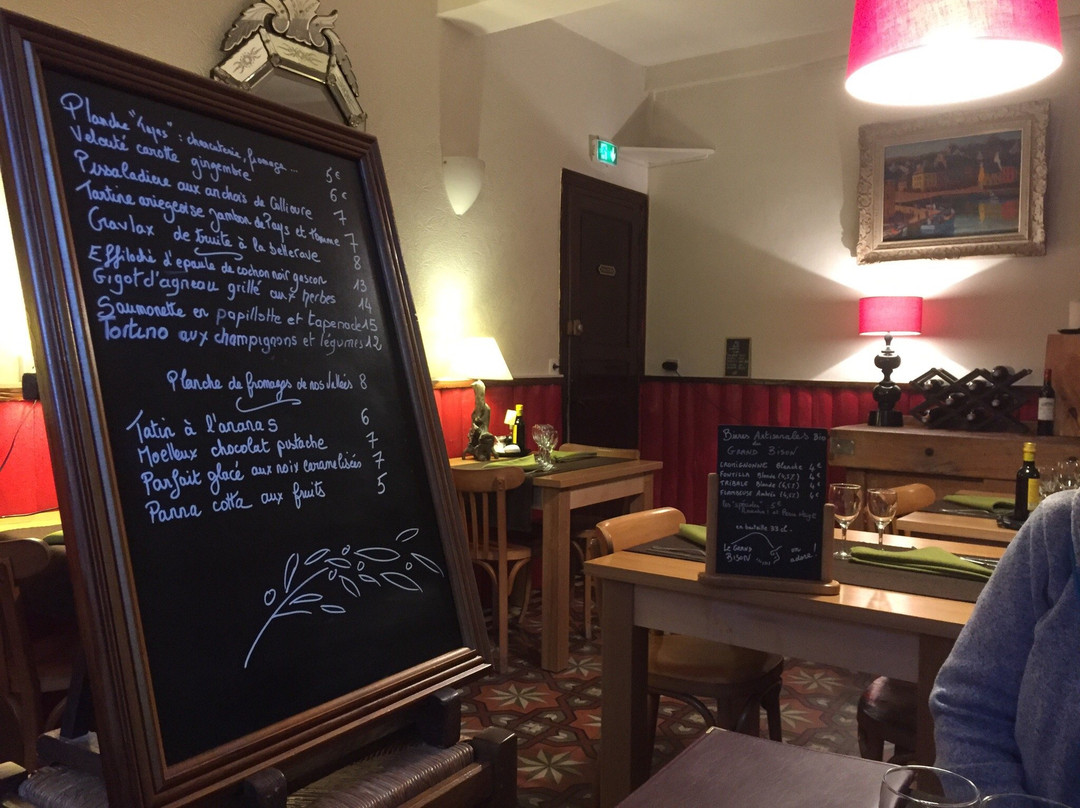 Planche "Tapas" : charcuterie, fromage...
5€
Velouté carotte gingembre 6€
Pissaladiere aux anchois de Collioure 7
Tartine ariegeoise jambon de Pays et tomme 7
Gravlax de truite à la betterave 8
Effiloché d'epaule de cochon noir gascon 13
Gigot d'agneau grillé aux herbes 14
Saumonette en papillotte et tapenade 15
Tortino aux champignons et légumes 12
Planche de fromages de nos vallées 8
Tatin à l'ananas 6
Moelleux chocolat pistache 7
Parfait glacé aux noix caramelisées 7
Panna cotta aux fruits 5
Bieres Artisanales Bio
du
GRAND BISON
Blanche 4€
Blonde 4€
TRIBALE Blonde 4€
4€
5€
en bouteille 33 cl.
LE GRAND
BISON
on
adore!